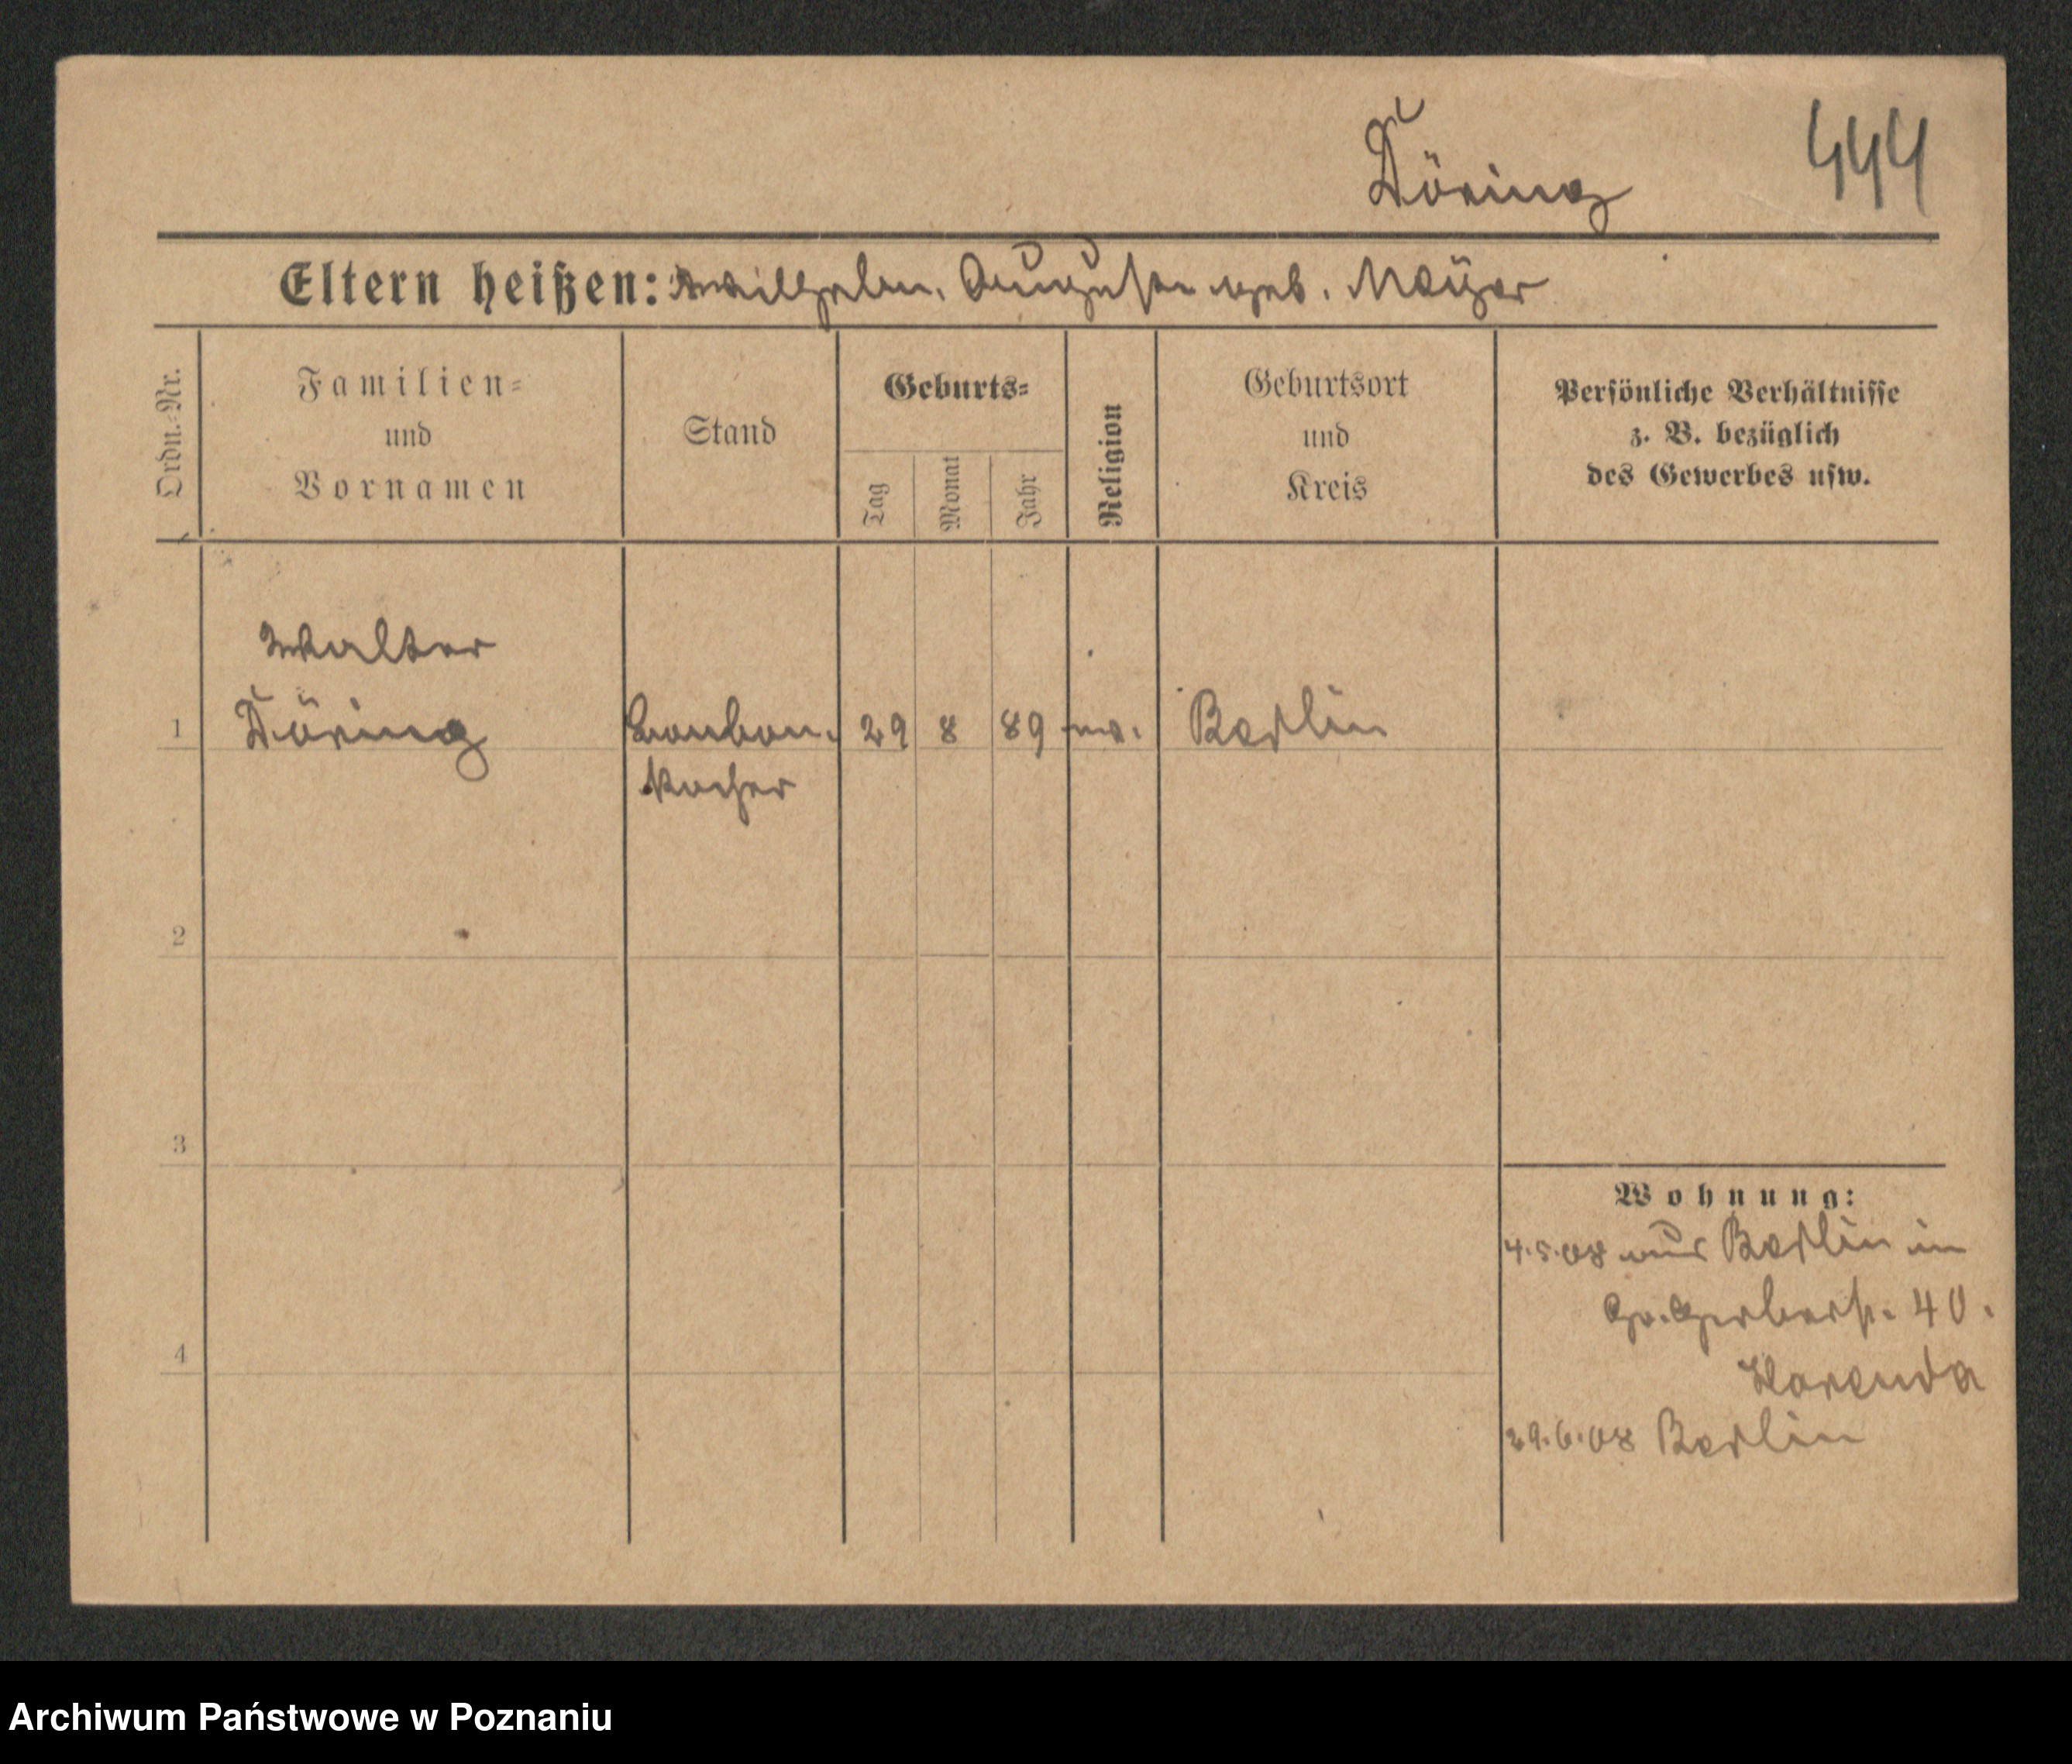 Döring 444
Eltern heißen: Wilhelm, Auguste geb. Meyer
Ordn.=Nr.
Familien=
und
Vornamen
Stand
Geburts=
Tag
Monat
Jahr
Religion
Geburtsort
und
Kreis
Persönliche Verhältnisse
z. B. bezüglich
des Gewerbes usw.
Walter
1 Döring Bonbon- 29 8 89 ev. Berlin
kocher
2
3
Wohnung:
4.5.08 aus Berlin in
Gr. Gerberstr. 40.
4
29.6.08 Berlin
Archiwum Państwowe w Poznaniu